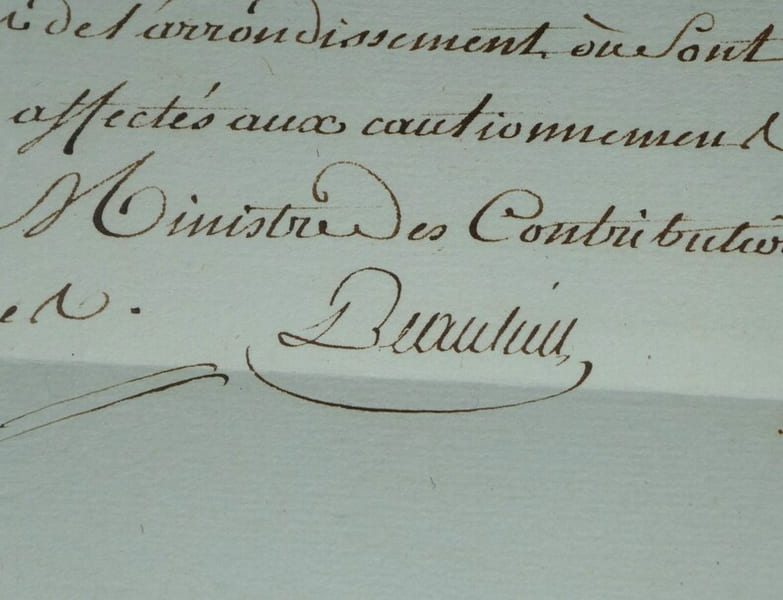 de l'arrondissement où Sont
affectés aux cautionnemen
Ministre Des Contribution
Beaulieu